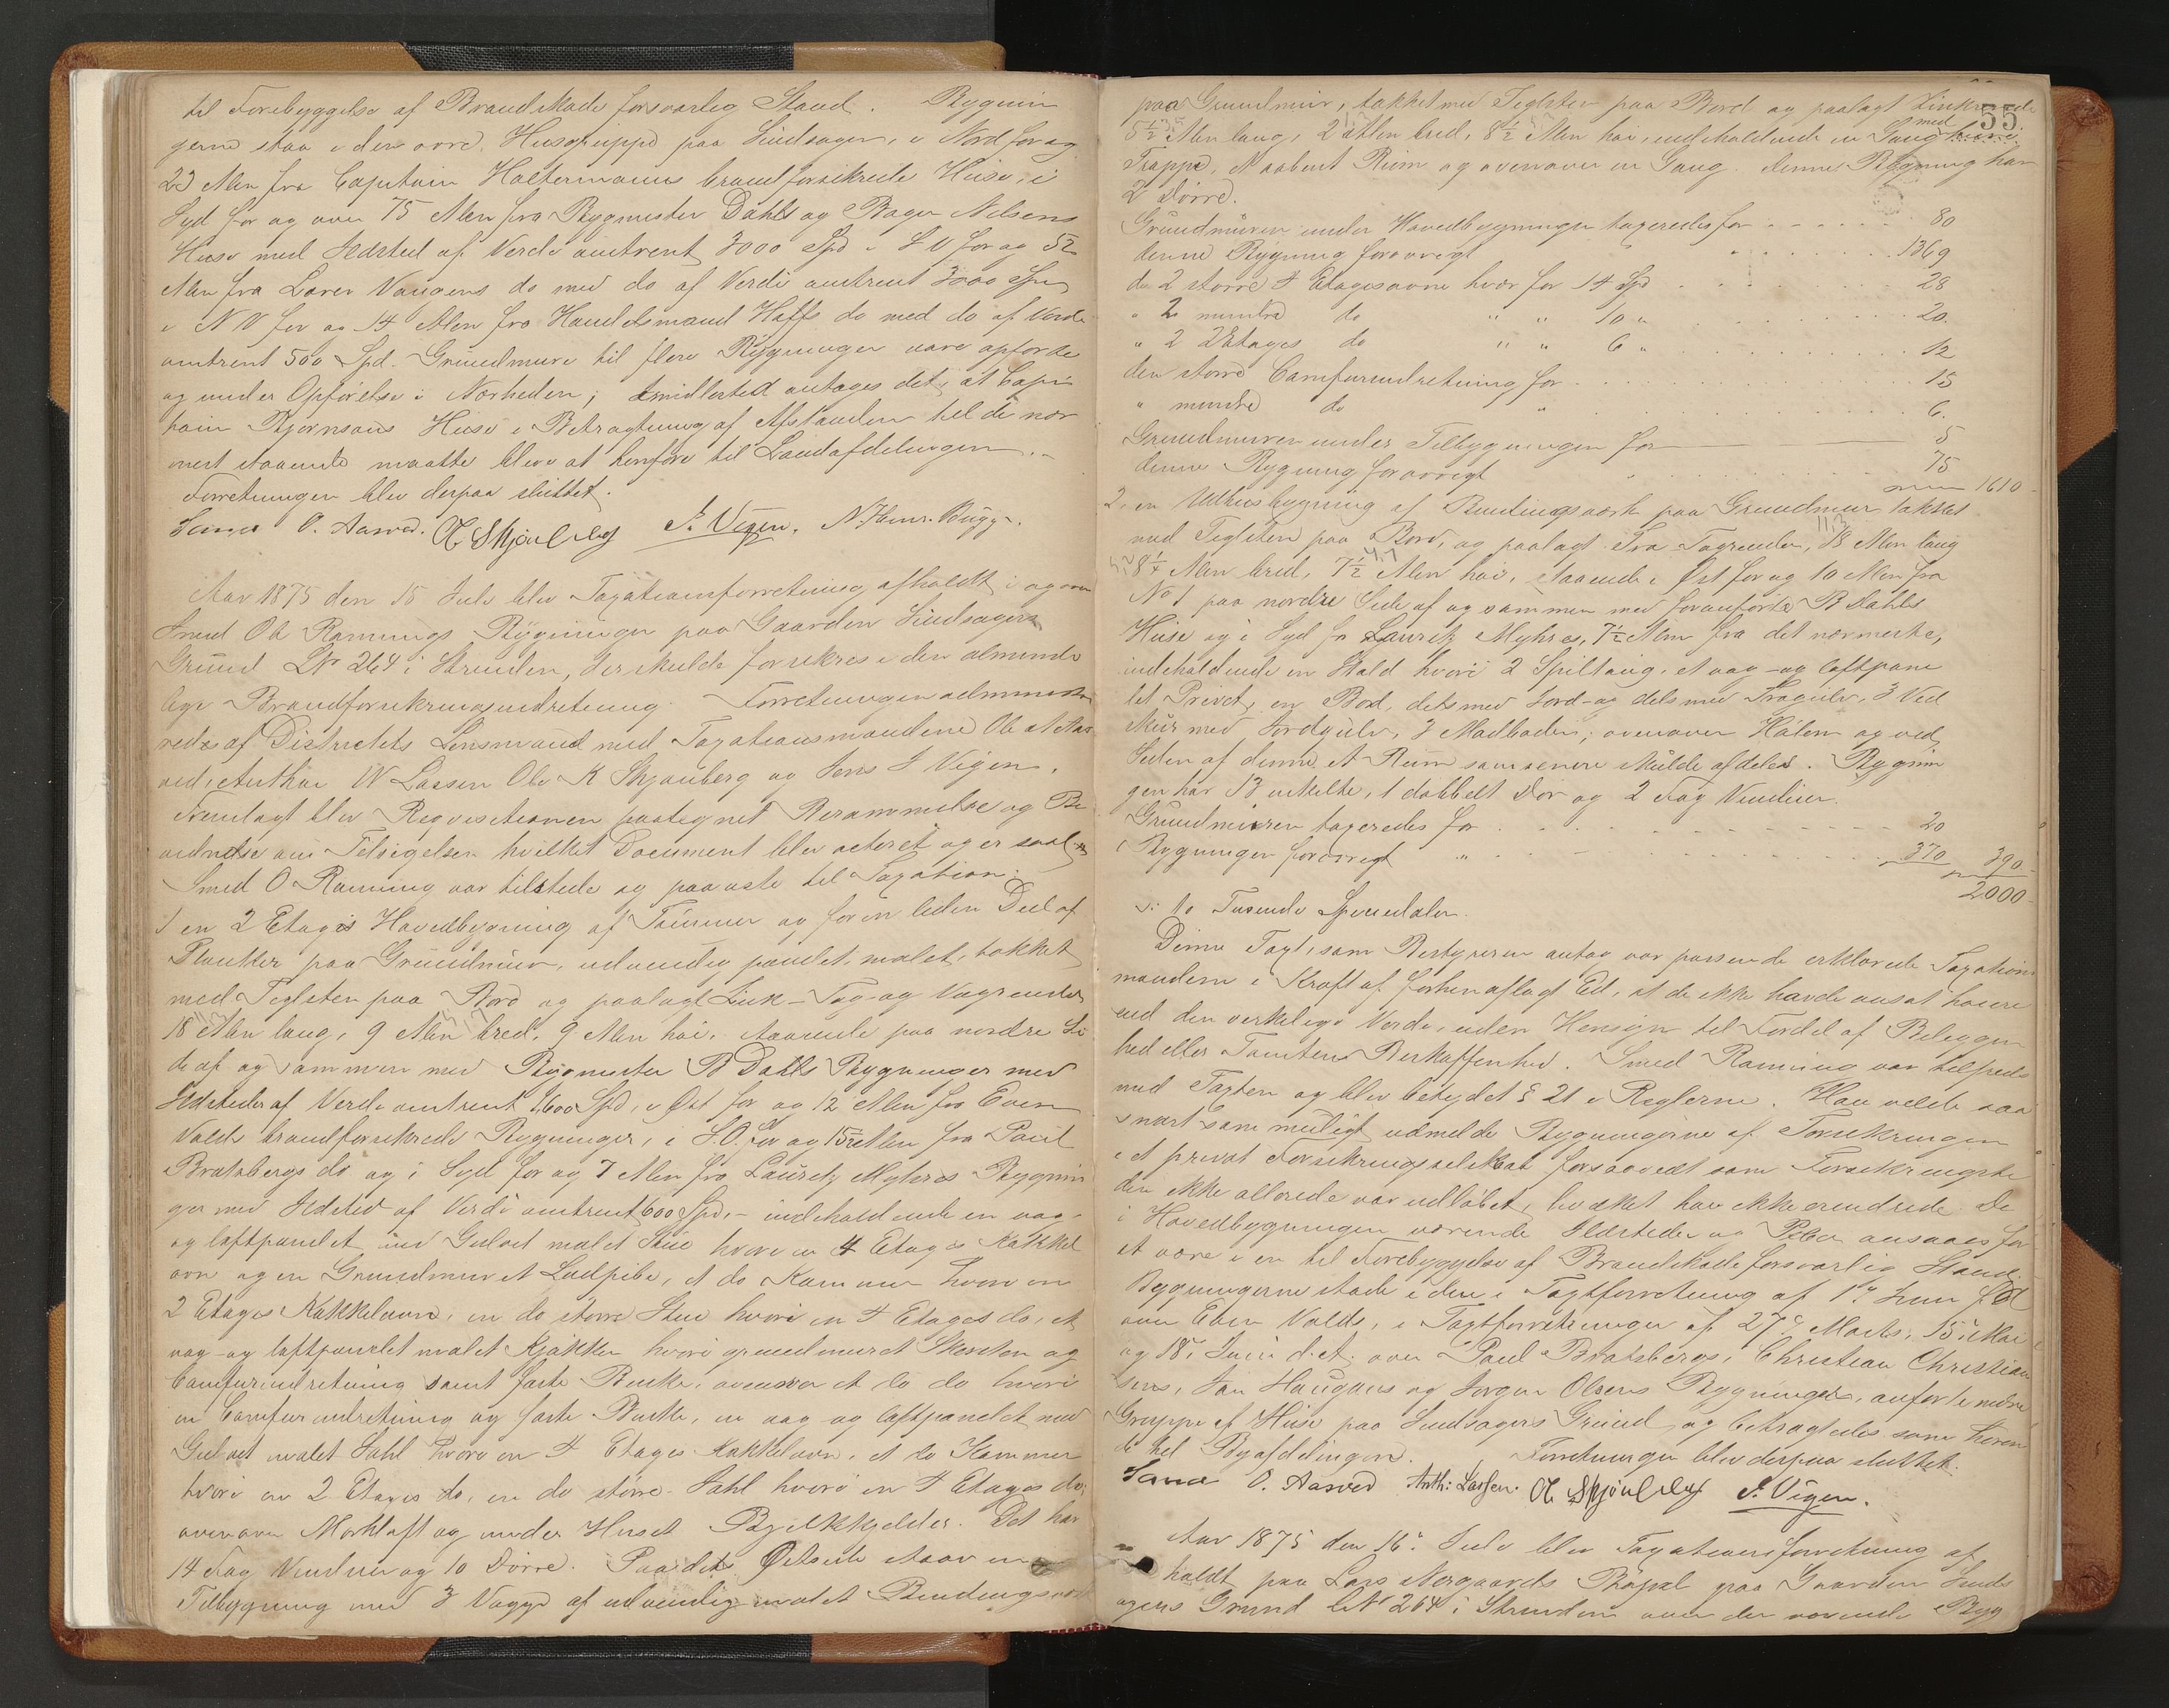 til Forebyggelse af Brandskade forsvarlig Stand. Bygnin
gerne staa i den øvre Husgruppe paa Lindsagen, i Nord for og
23 Alen fra Capitain Holtermanns brandforsikrede Huse, i
Syd for og over 75 Alen fra Bygmester Dahls og Bager Nilsens
Huse med Ildsted af Verdi omtrent 3000 Spd i S V for og 52
Alen fra Lærer Vaugens do med do af Verdi omtrent 3000 Spd
i N V for og 14 Alen fra Handelsmand Haffs do med do af Verdi
omtrent 500 Spd. Grundmure til flere Bygninger vare opførte
og under Opførelse i Nærheden; imidlertid antages det, at Capi
tain Bjørnsons Huse i Betragtning af Afstanden til de nær
mest staaende maatte blive at henføre til Landafdelingen.
Forretningen blev derpaa sluttet.
Sand O. Aasved. O. K. Skjølberg J. Vigen. N. Henr. Bugge.
Aar 1875 den 15 Juli blev Taxationsforretning afholdt i og over
Smed Ole Rannings Bygninger paa Gaarden Lindsagens
Grund LNr 264 i Strinden, der skulde forsikres i den alminde
lige Brandforsikringsindretning. Forretningen administre
redes af Districtets Lensmand med Taxationsmændene Ole A Aas
ved, Anthon W Lassen Ole K Skjølberg og Jens J Vigen.
Fremlagt blev Reqvisitionen paategnet Berammelse og Be
vidnelse om Tilsigelsen hvilket Document blev acteret og er saal.
Smed O Ranning var tilstede og paaviste til Taxation:
1 en 2 Etages Hovedbygning af Tømmer og for en liden Deel af
Planker paa Grundmur, udvendig panelet, malet, takket
med Teglsten paa Bord og paalagt Zink-Tag- og Vagrender
18 Alen lang, 9 Alen bred, 9 Alen høi, staaende paa nordre Si
de af og sammen med Bygmester B Dahls Bygninger med
Ildsteder af Verdi omtrent 1600 Spd, i Øst for og 12 Alen fra Even
Volds brandforsikrede Bygninger, i S.O. for og 15½ Alen fra Paul
Bratsbergs do og i Syd for og 7 Alen fra Lauritz Myhres Bygnin
ger med Ildsted af Verdi omtrent 600 Spd, - indeholdende en væg-
og loftpanelet med Gulvet malet Stue hvori en 4 Etages Kakkel
ovn og en Grundmuret Ludpibe, et do Kammer hvori en
2 Etages Kakkelovn, en do større Stue hvori en 4 Etages do, et
væg- og loftpanelet malet Kjøkken hvori grundmuret Skorsten og
Comfurindretning samt faste Bænke, ovenover et do do hvori
en Comfurindretning og faste Bænke, en væg og loftpanelet med
Gulvet malet Sahl hvori en 4 Etages Kakkelovn, et do Kammer
hvori en 2 Etages do, en do større Sahl hvori en 4 Etages do,
ovenover Mørkloft og under Huset Bjelkkjelder. Det har
14 Fag Vinduer og 10 Dørre. Paa dets Østside staar en
Tilbygning med 3 Vægge af udvendig malet Bindingsværk
55
paa Grundmur, takket med Teglsten paa Bord og paalagt Zinkrende
5½ Alen lang, 2 Alen bred, 8½ Alen høi, indeholdende en Gang med
Trappe, et aabent Rum og ovenover en Gang. Denne Bygning har
2 Dørre.
Grundmuren under Hovedbygningen taxeredes for . . . . . . 80
denne Bygning forøvrigt " . . . . . . 1369
de 2 større 4 Etagesovne hver for 14 Spd . . . . . . 28
" 2 mindre do " " 10 " . . . . . . 20.
" 2 2 Etages do " " 6 " . . . . . . 12
den større Comfurindretning for . . . . . . 15
" mindre do " . . . . . . 6.
Grundmuren under Tilbygningen for 5
denne Bygning forøvrigt " . . . . . . 75
1610
2, en Udhusbygning af Bindingsværk paa Grundmur takket
med Teglsten paa Bord, og paalagt Træ Tagrender, 18 Alen lang
8¼ Alen bred, 7½ Alen høi, staaende i Øst for og 10 Alen fra
No 1 paa nordre Side af og sammen med foranførte B Dahls
Huse og i Syd for Lauritz Myhres, 7½ Alen fra det nærmeste,
indeholdende en Stald hvori 2 Spiltaug, et væg- og loftpane
let Privet, en Bod, dels med Jord- og dels med Trægulv, 3 Ved
skur med Jordgulv, 3 Madboder; ovenover Hølem og ved
Siden af denne et Rum som senere skulde afdeles. Bygnin
gen har 13 enkelte, 1 dobbelt Dør og 2 Fag Vinduer.
Grundmuren taxeredes for . . . . . . 20
Bygningen forøvrigt " . . . . . . 370 390
2000
: To Tusende Speciedaler.
Denne Taxt, som Bestyreren antog var passende erklærede Taxations
mændene i Kraft af forhen aflagt Ed, at de ikke havde ansat høiere
end den virkelige Værdi, uden Hensyn til Fordel af Beliggen
hed eller Tomtens Beskaffenhed. Smed Ranning var tilfreds
med Taxten og blev betydet § 21 i Reglerne. Han vilde saa
snart som muligt udmelde Bygningerne af Forsikringen
i et privat Forsikringsselskab forsaavidt som Forsikringsti
den ikke allerede var udløbet, hvilket han ikke erindrede. De
i Hovedbygningen værende Ildsteder og Piber ansaaes for
at være i en til Forebyggelse af Brandskade forsvarlig Stand.
Bygningerne stode i den i Taxtforretning af 1ste Juni f A
over Even Volds, i Taxtforretninger af 27de Marts, 15 Mai
og 18. Juni d. A. over Paul Bratsbergs, Christian Christian
sens, Jan Haugans og Jørgen Olsens Bygninger, anførte nedre
Gruppe af Huse paa Lindsagens Grund og betragtedes som høren
de til Byafdelingen. Forretningen blev derpaa sluttet.
Sand O. Aasved Anth: Lassen. O. K. Skjølberg J. Vigen.
Aar 1875 den 16. Juli blev Taxationsforretning af
holdt paa Lars Nergaards Plads paa Gaarden Linds
agens Grund LNr 264 i Strinden over der værende Byg